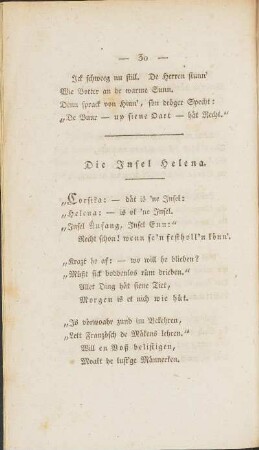 — 30 —
Ick schweeg nu still. De Herren stunn'
Wie Botter an de warme Sunn.
Denn sprack von Hinn', sien dröger Specht:
„De Bure — up siene Oart — hät Recht."
Die Insel Helena.
„Korsika: — dät is 'ne Insel:
„Helena: — is ok 'ne Insel.
„Insel Anfang, Insel Enn:"
Recht schon! wenn se'n festholl'n könn'.
„Krazt he ok: — wo will he blieben?
„Müßt sick boddenlos rüm drieben."
Allet Ding hät siene Tiet,
Morgen is et nich wie hüt.
„Is vorwoahr
im Bekehren,
„Lett Franzbsch de Mäkens lehren."
Will en Voß belistigen,
Moakt he lust'ge Männerken.